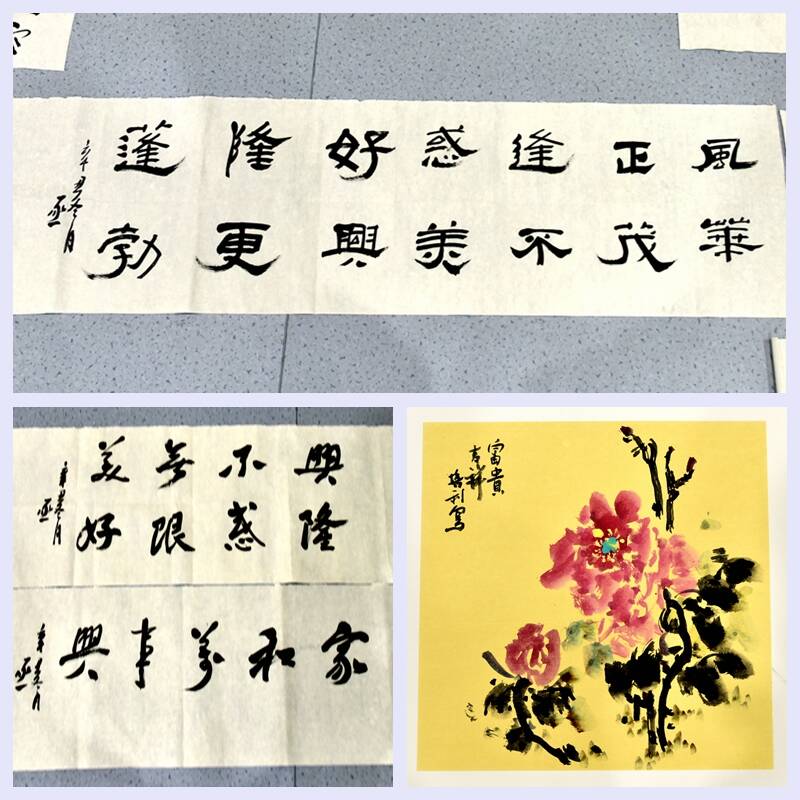 風華
正茂
逢不
惑美
好興
隆更
蓬勃
辛丑冬月
興隆
不惑
無限
美好
辛丑冬月
家和萬事興
辛丑冬月
富貴
吉祥
寫